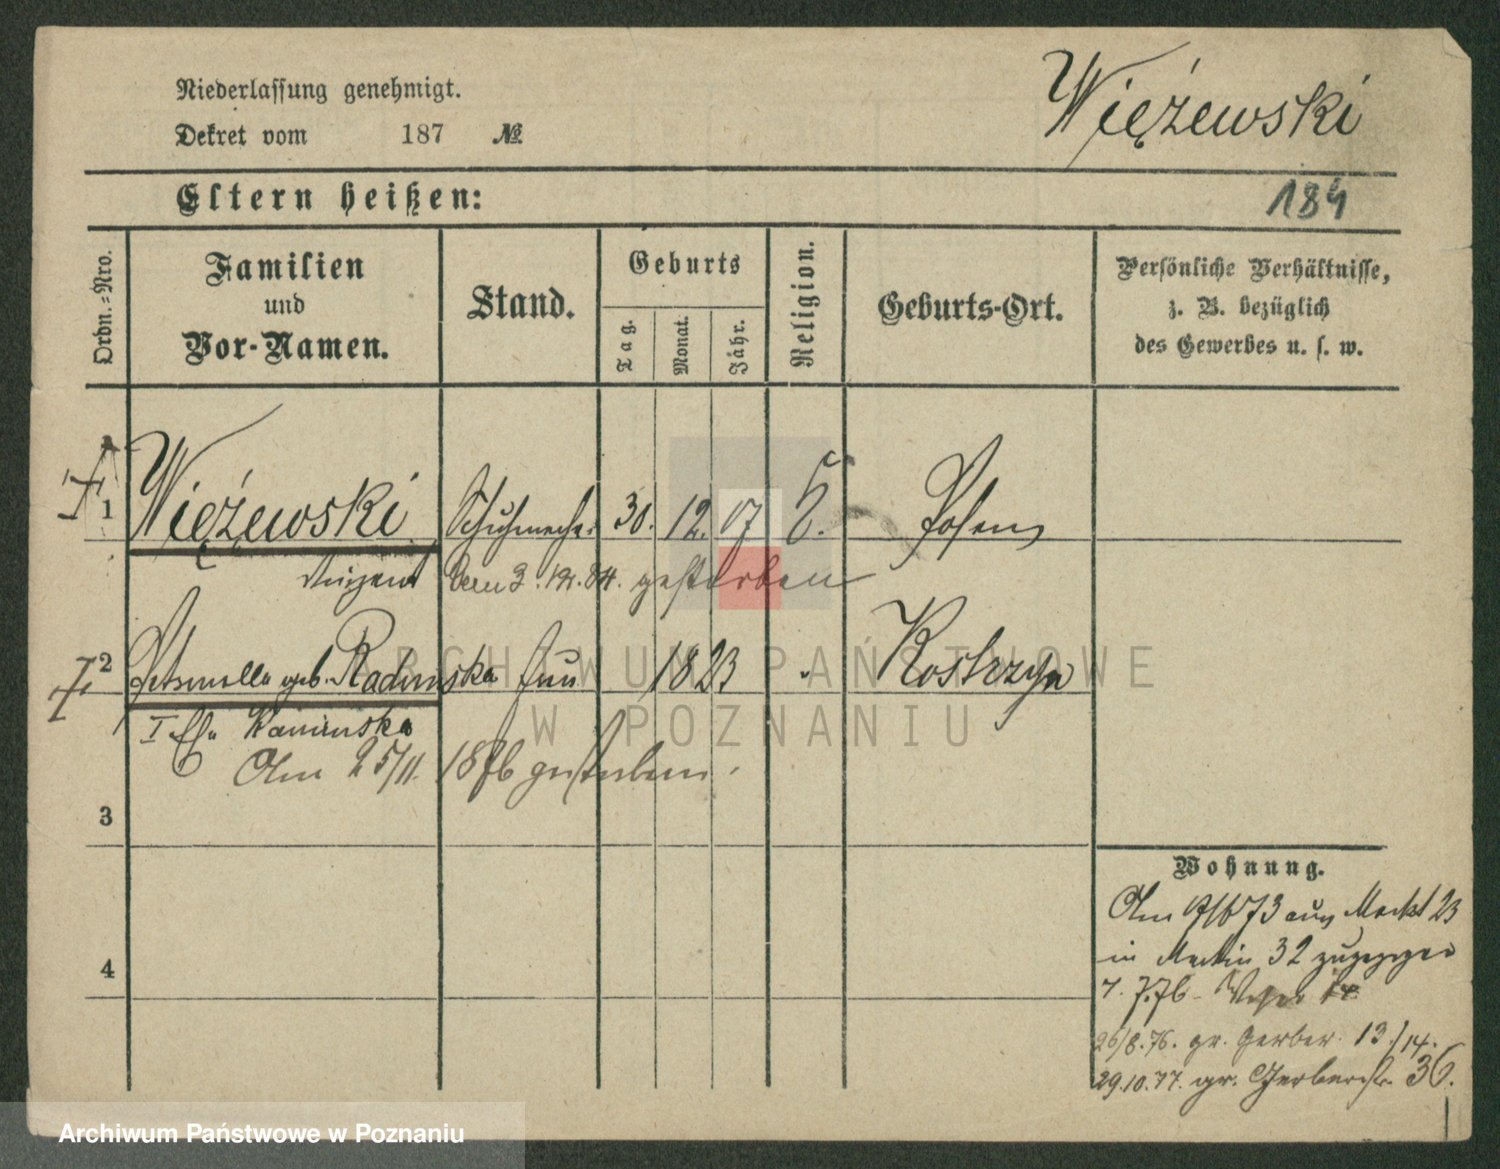 Niederlassung genehmigt.
Więżewski
Dekret vom 187 №
Eltern heißen:
184
Ordn.-Nro.
Familien
und
Vor-Namen.
Stand.
Geburts
Tag.
Monat.
Jahr.
Religion.
Geburts-Ort.
Persönliche Verhältnisse,
z. B. bezüglich
des Gewerbes u. s. w.
1 Więżewski Schuhmacher 30. 12. 07 Posen
den 3. 12. 84. gestorben
2 Petronella geb. Radinska Frau 1823 Kostrzyn
I Kaminska
Am 25/11. 1876 gestorben.
3
4
Wohnung.
Am 73 aus Markt 23
in Martin 32 zugezogen
7.76
26/8.76. gr. Gerber 13/14.
29.10.77. gr. Gerberstr. 36.
ARCHIWUM PAŃSTWOWE
W POZNANIU
Archiwum Państwowe w Poznaniu